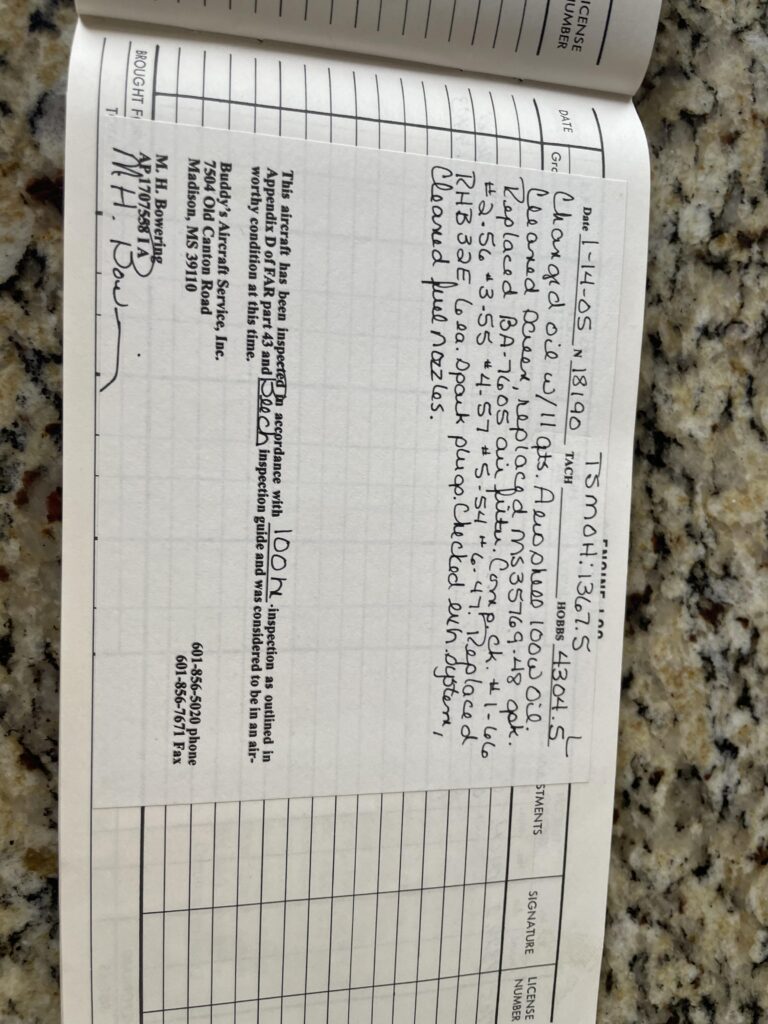 LICENSE
NUMBER
ENGINE LOG
DATE
STMENTS
SIGNATURE
LICENSE
NUMBER
BROUGHT F
TSMOH: 1367.5 L
Date 1-14-05 N 18190 TACH HOBBS 4304.5
Changed oil w/11 qts. Aeroshell 100w oil.
Cleaned screen, replaced MS35769-48 gskt.
Replaced BA-7605 air filter. Comp. ck. #1-66
#2-56 #3-55 #4-57 #5-54 #6-47. Replaced
RHB32E 6 ea. spark plugs. Checked exh. system,
Cleaned fuel nozzles.
This aircraft has been inspected in accordance with 100 h -inspection as outlined in
Appendix D of FAR part 43 and Beech inspection guide and was considered to be in an air-
worthy condition at this time.
Buddy's Aircraft Service, Inc.
7504 Old Canton Road
Madison, MS 39110
601-856-5020 phone
601-856-7671 Fax
M. H. Bowering
M.H. Bow